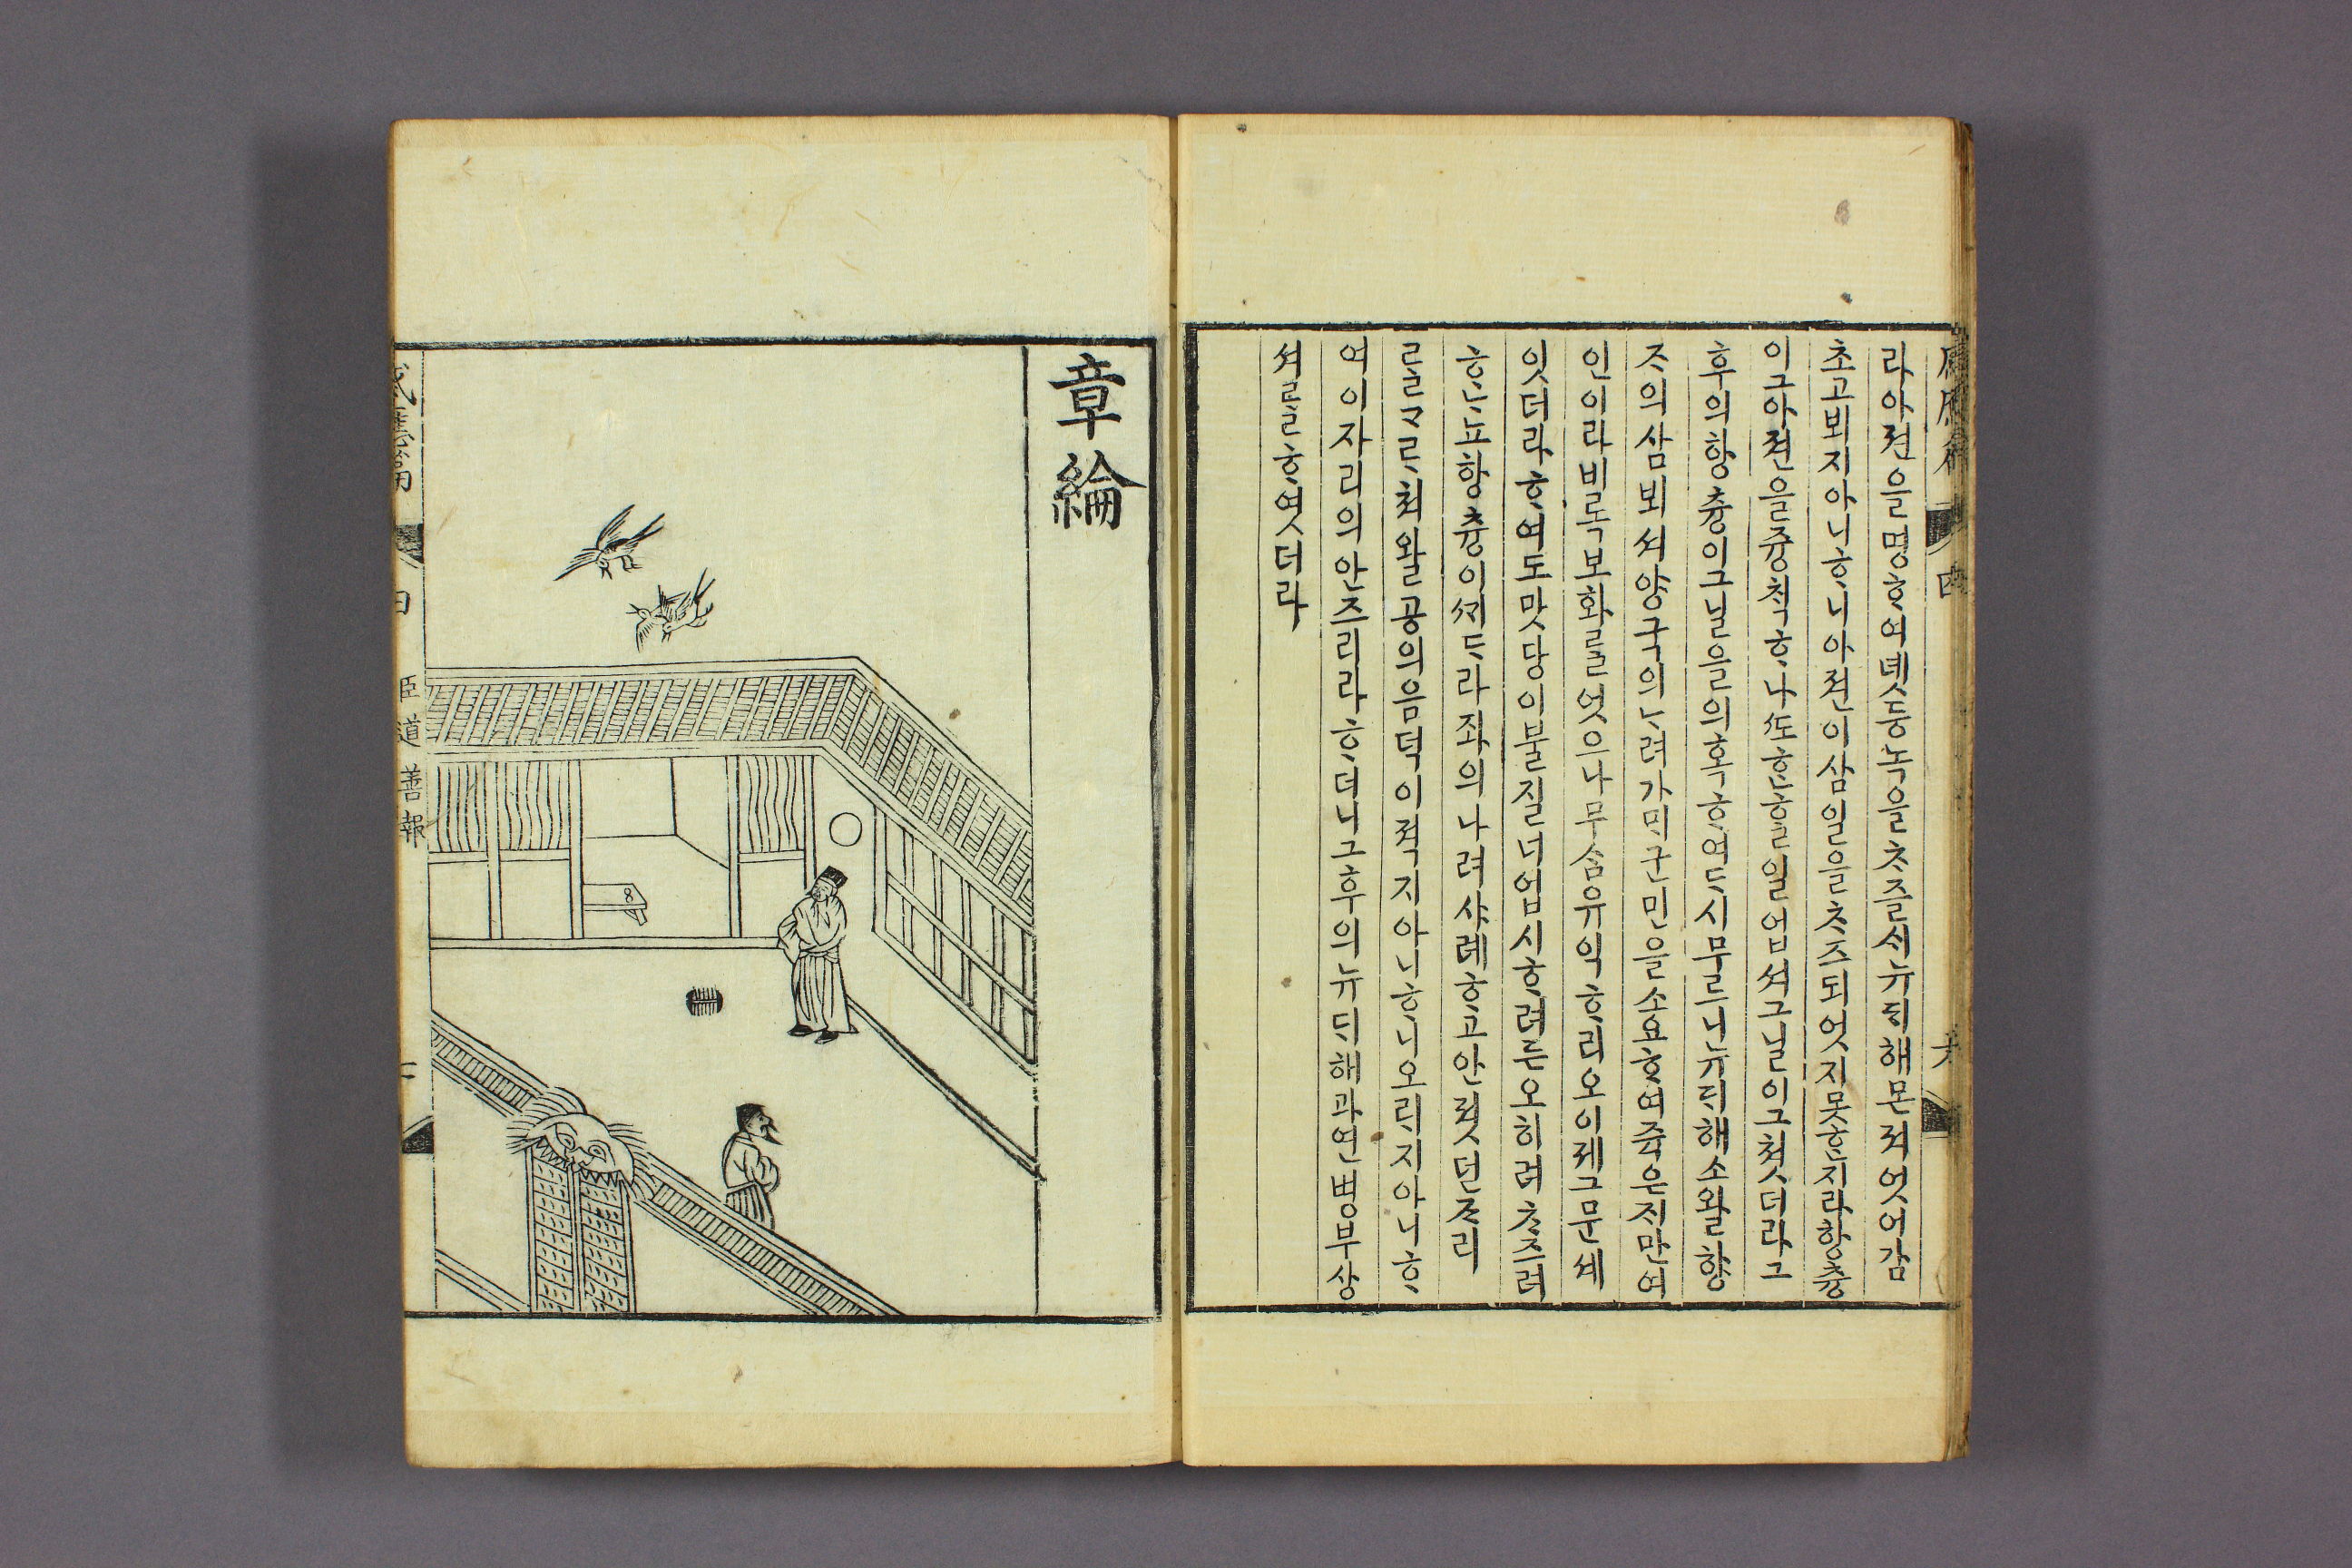 라아젼을명ᄒᆞ여뎻둥녹을ᄎᆞ즐ᄉᆡ뉴ᄃᆡ해몬져엇어감
초고뵈지아니ᄒᆞ니아젼이삼일을ᄎᆞᄌᆞ되엇지못ᄒᆞᆫ지라향츙
이그아젼을즁칙ᄒᆞ나ᄯᅩᄒᆞᆫᄒᆞᆯ일업셔그닐이그쳣더라그
후의향츙이그닐을의혹ᄒᆞ여ᄃᆞ시무르니뉴ᄃᆡ해소왈향
ᄌᆞ의삼뵈셔양국의ᄂᆞ려가ᄆᆡ군민을소요ᄒᆞ여쥭은ᄌᆡ만여
인이라비록보화ᄅᆞᆯ엇으나무ᄉᆞᆷ유익ᄒᆞ리오이졔그문셰
잇더라ᄒᆞ여도맛당이불질너업시ᄒᆞ려든오히려ᄎᆞᄌᆞ려
ᄒᆞᄂᆞ뇨향츙이ᄭᆡᄃᆞ라좌의나려샤례ᄒᆞ고안졋던ᄌᆞ리
ᄅᆞᆯᄀᆞᄅᆞ쳐왈공의음덕이젹지아니ᄒᆞ니오ᄅᆡ지아니ᄒᆞ
여이자리의안즈리라ᄒᆞ더니그후의뉴ᄃᆡ해과연병부상
셔ᄅᆞᆯᄒᆞ엿더라
章綸
感應篇
臣道善報